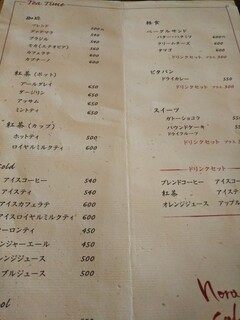 Tea Time
珈琲
ブレンド 500円
グアテマラ
ブラジル
モカ(エチオピア)
カフェラテ
カプチーノ
紅茶(ポット)
アールグレイ 450
ダージリン 450
アッサム 450
ミントティ 450
紅茶(カップ)
ホットティ 500
ロイヤルミルクティ 600
Cold
アイスコーヒー 540
アイスティ 540
アイスカフェラテ 600
アイスロイヤルミルクティ 600
ウーロンティ 450
ジンジャーエール 450
オレンジジュース 500
アップルジュース 500
軽食
ベーグルサンド
バター・ハチミツ
クリームチーズ
タマゴ
ドリンクセット
ピタパン
ドライカレー
ドリンクセット
スイーツ
ガトーショコラ
パウンドケーキ
ドライフルーツ
ドリンクセット
ドリンクセット
ブレンドコーヒー アイス
紅茶 アイステ
オレンジジュース アップル
Nora